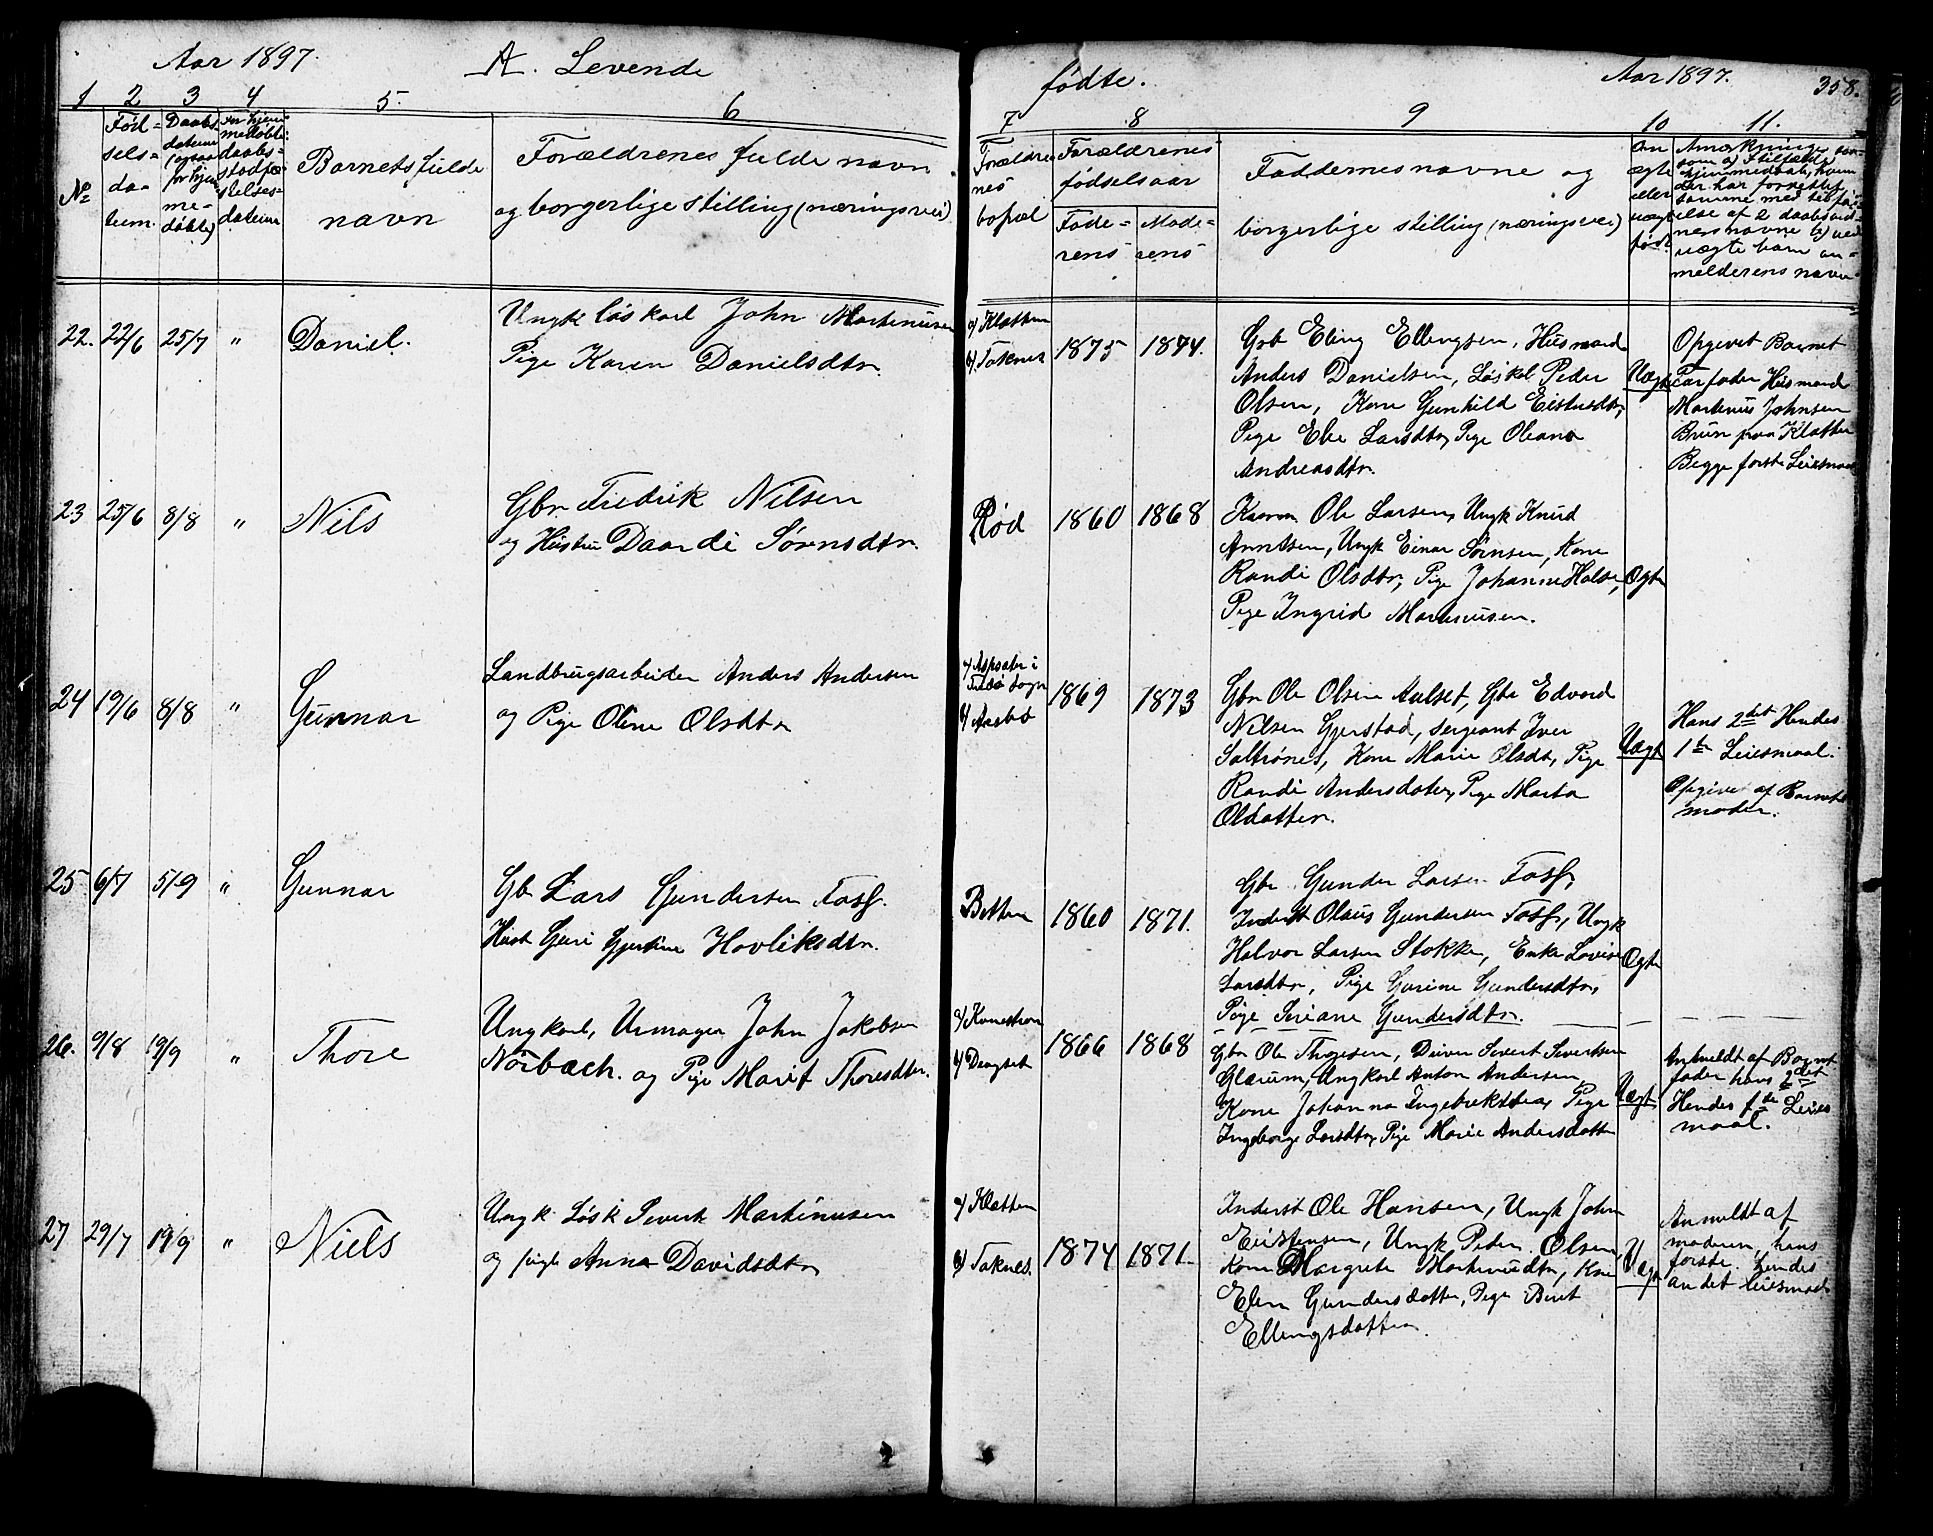 Aar 1897.
A. Levende
fødte.
Aar 1897.
358.
1 2 3 4 5. 6 7 8 9 10 11.
No
Fød-
sels-
da-
tum.
Daabs-
datum
(ogsaa
for hjem-
me-
døbte)
For hjem-
medøbte:
daabs-
stadfæ-
stelses-
datum
Barnets fulde
navn
Forældrenes fulde navn
og borgerlige stilling (næringsvei)
Forældre
nes
bopæl
Forældrenes
fødselsaar
Fade-
rens
Mode-
rens
Faddernes navne og
borgerlige stilling (næringsvei)
om
ægte
eller
uægte
født.
Anmærkninger saa-
som a) i tilfælde
hjemmedaab, hvem
der har forrettet
samme med tilføi-
else af 2 daabsvid-
ners navne b) ved
uægte barn an-
melderens navn
22. 22/6 25/7 " Daniel.
Ungk løskarl John Martinusen
Pige Karen Danielsdtr
a) Kletten
b) Taknes
1875 1874.
Gbr Eling Ellingsen, Husmand
Anders Danielsen, Løskal Peder
Olsen, Kone Gunhild Eistensdtr,
Pige Eli Larsdtr, Pige Oleana
Andreasdtr.
Uægt
Opgivet Barnet
Farfader Husmand
Martinus Johnsen
Brun fra Kletten
Begge første Leiermaal
23 25/6 8/8 " Nils
Gbr Fredrik Nilsen
og Hustru Daardi Sørensdtr.
Rød
1860 1868
Kaarm. Ole Larsen, Ungk Knud
Arntsen, Ungk Einar Sørnsen, Kone
Randi Olsdtr, Pige Johanne Halse,
Pige Ingrid Martinusen.
Ægte
24 19/6 8/8 " Gunnar
Landbrugsarbeider Anders Andersen
og Pige Oline Olsdtr
a) Aspsæter i
sogn
b) Aasbø
1869 1873
Gbr Ole Olsen Aalset, Gbr Edvard
Nilsen Gjerstad, sergeant Iver
Saltrønes, Kone Marie Olsdt, Pige
Randi Andersdatter, Pige Marta
Olsdatter.
Uægt
Hans 2det Hendes
1te Leiermaal.
Opgivet af Barnets
moder.
25. 6/7 5/9 " Gunnar
Gbr Lars Gundersen Foss.
Hust Guri Gjertine Havliksdtr.
Betten
1860 1871.
Gbr. Gunder Larsen Foss,
Inderst Olaus Gundersen Foss, Ungk
Halvor Larsen Stokke, Enke Lovise
Larsdtr, Pige Gurine Gundersdtr,
Pige Seriane Gundersdtr.
Ægte
26. 9/8 19/9 " Thore
Ungkarl, Urmager John Jakobsen
Nørbæch. og Pige Marit Thoresdtr.
a)
b)
1866 1868
Gbr Ole Thoresen, Sivert Sivertsen
Glærum, Ungkarl Anton Andersen,
Kone Johanna Ingebrektdtr, Pige
Ingeborg Larsdtr, Pige Marie Andersdatter
Uægt
Anmeldt af Barnets
fader hans 2det
Hendes 1te Leier
maal.
27 29/7 19/9 " Niels
Ungk Løsk Sivert Martinusen
og pige Anna Davidsdtr
a) Kletten
b) Taknes.
1874 1871.
Inderst Ole Hansen, Ungk John
Eistensen, Ungk Peder Olsen,
Kone Margrete Martinusdtr, Kone
Elen Gundersdatter, Pige Berit
Ellingsdatter.
Uægt
Anmeldt af
moderen, hans
første. hendes
andet leiermaal